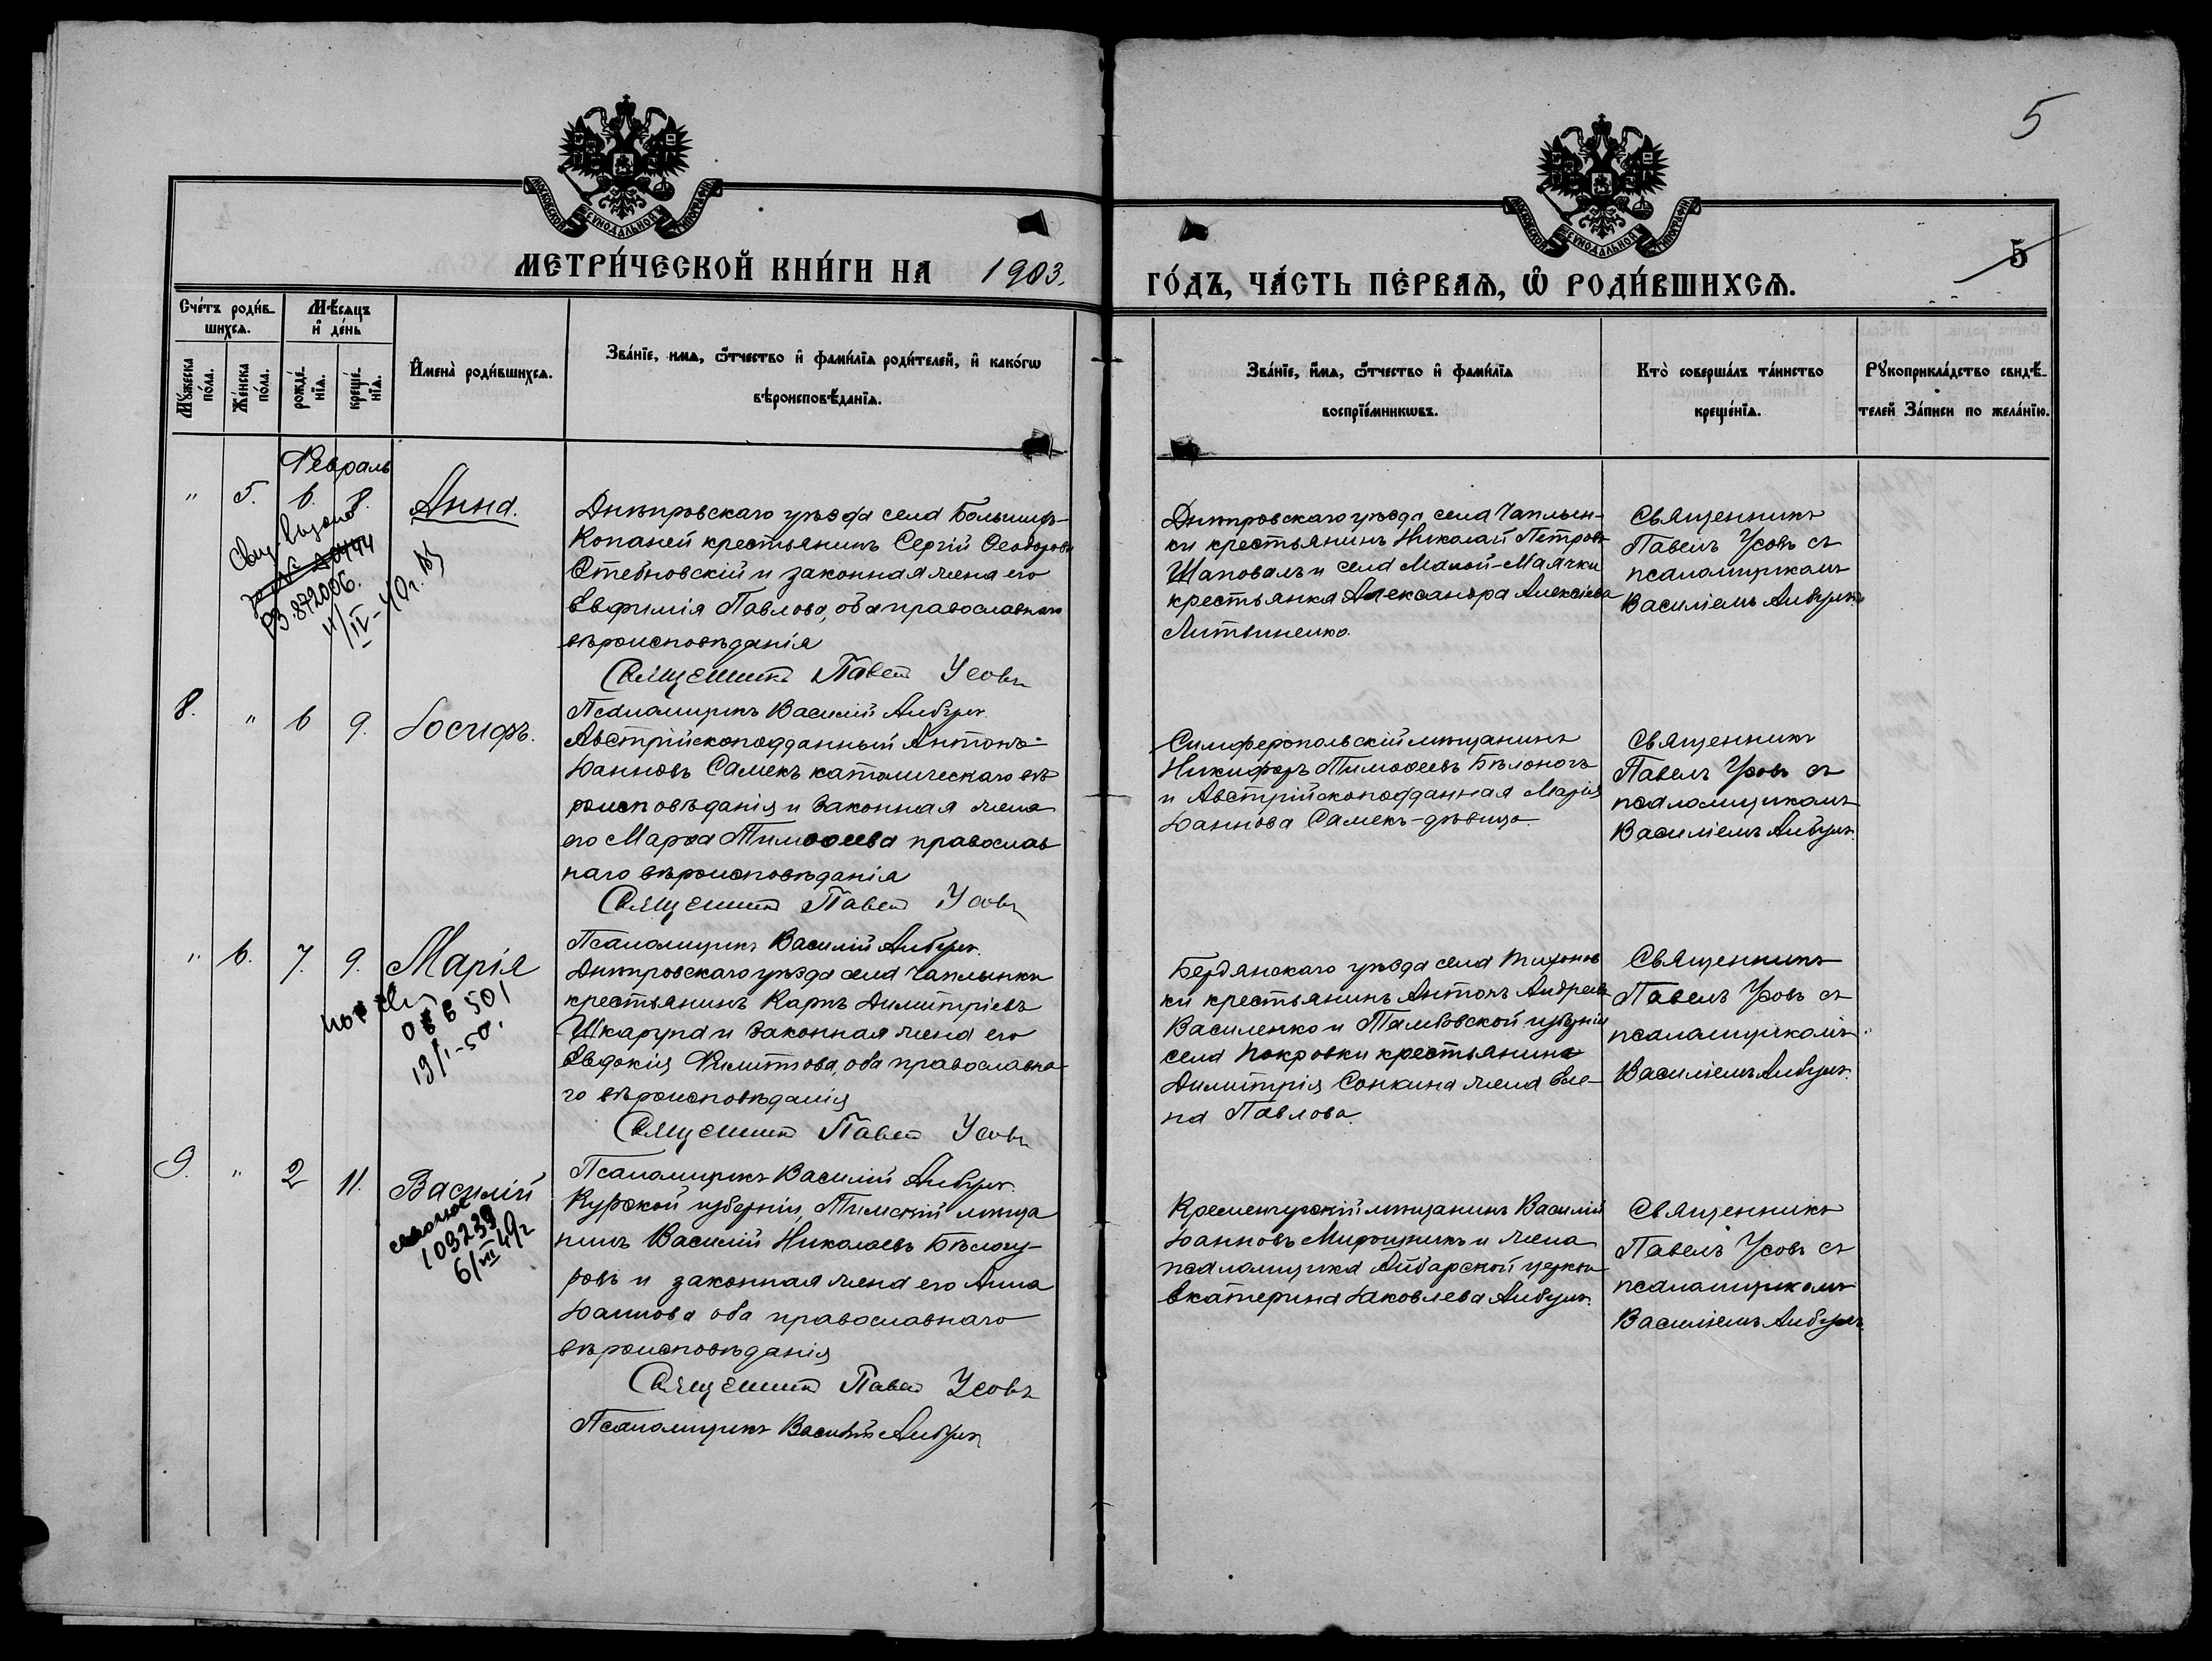 5
МОСКОВСКОЙ СѴНОДАЛЬНОЙ ТИПОГРАФІИ
МОСКОВСКОЙ СѴНОДАЛЬНОЙ ТИПОГРАФІИ
МЕТРИ́ЧЕСКОЙ КНИ́ГИ НА 1903.
ГО́ДЪ, ЧА́СТЬ ПЕ́РВАѦ, Ѡ РОДИ́ВШИХСѦ.
5
Сче́тъ роди́в-
шихсѧ.
Мѣ́сѧцъ
и҆ де́нь
Мꙋ́жеска
по́ла.
Же́нска
по́ла.
рожде́-
нїѧ.
креще́-
нїѧ.
И҆мена̀ роди́вшихсѧ.
Зва́нїе, имѧ, ѻ҆́тчество и҆ фами́лїѧ роди́телей, и҆ како́гѡ
вѣроисповѣ́данїѧ.
Зва́нїе, и҆́мѧ, ѻ҆́тчество и҆ фами́лїѧ
воспрїе́мникѡвъ.
Кто̀ соверша́лъ та́инство
креще́нїѧ.
Рꙋкоприкла́дство свидѣ́-
телей За́писи по жела́нїю.
Февраль
" 5. 6. 8. Анна.
Днѣпровскаго уѣзда села Большихъ-
Копаней крестьянинъ Сергій Ѳеодоровъ
Стебновскій и законная жена его
Евфимія Павлова, оба православнаго
вѣроисповѣданія
Священникъ Павелъ Усовъ
Псаломщикъ Василій
Днѣпровскаго уѣзда села Чаплын-
ки крестьянинъ Николай Петровъ
Шаповалъ и села Малой-Маячки
крестьянка Александра Алексіева
Литвиненко.
Священникъ
Павелъ Усовъ съ
псаломщикомъ
Василіемъ
872006.
11/IV-40г.
8. " 6 9. Іосифъ.
Австрійскоподданный Антонъ
Іанновъ Самекъ католическаго вѣ
роисповѣданія и законная жена
его Марѳа Тимоѳеева православ
наго вѣроисповѣданія
Священникъ Павелъ Усовъ
Псаломщикъ Василій
Симферопольскій мѣщанинъ
Никифоръ Тимоѳеевъ Бѣлоногъ
и Австрійскоподданная Марія
Іаннова Самекъ-дѣвица
Священникъ
Павелъ Усовъ съ
псаломщикомъ
Василіемъ
" 6. 7. 9. Марія
501
19/I-50.
Днѣпровскаго уѣзда села Чаплынки
крестьянинъ Карпъ Димитріевъ
Шкарупа и законная жена его
Евдокія Филиппова, оба православна-
го вѣроисповѣданія
Священникъ Павелъ Усовъ
Псаломщикъ Василій
Бердянскаго уѣзда села Тихонов
ки крестьянинъ Антонъ Андреевъ
Василенко и Тамбовской губерніи
села Покровки крестьянина
Димитрія Сонкина жена Еле-
на Павлова.
Священникъ
Павелъ Усовъ съ
псаломщикомъ
Василіемъ
9. " 2 11. Василій
103239
6/VII 49г
Курской губерніи, Тимскій мѣща
нинъ Василій Николаевъ Бѣлогу-
ровъ и законная жена его Анна
Іаннова оба православнаго
вѣроисповѣданія
Священникъ Павелъ Усовъ
Псаломщикъ Василій
Кременчугскій мѣщанинъ Василій
Іанновъ Мирошникъ и жена
псаломщика Айбарской церкви
Екатерина Іаковлева
Священникъ
Павелъ Усовъ съ
псаломщикомъ
Василіемъ